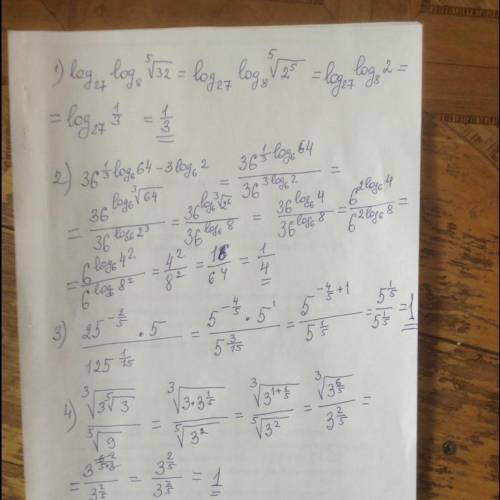 1) log₂₇ log₈ ⁵√32 = log₂₇ log₈ ⁵√2⁵ = log₂₇ log₈ 2 =
= log₂₇ 1/3 = 1/3
2) 36^(1/3 log₆ 64 - 3 log₆ 2) = 36^(1/3 log₆ 64) / 36^(3 log₆ 2) =
= 36^(log₆ ³√64) / 36^(log₆ 2³) = 36^(log₆ ³√2⁶) / 36^(log₆ 8) = 36^(log₆ 4) / 36^(log₆ 8) = 6^(2 log₆ 4) / 6^(2 log₆ 8) =
= 6^(log₆ 4²) / 6^(log₆ 8²) = 4²/8² = 16/64 = 1/4
3) 25^(-2/5) · 5 / 125^(1/15) = 5^(-4/5) · 5¹ / 5^(3/15) = 5^(-4/5 + 1) / 5^(1/5) = 5^(1/5) / 5^(1/5) = 1
4) ³√(3 ⁵√3) / ⁵√9 = ³√(3·3^(1/5)) / ⁵√3² = ³√(3^(1+1/5)) / ⁵√3² = ³√(3^(6/5)) / 3^(2/5) =
= 3^(6/5·3) / 3^(2/5) = 3^(2/5) / 3^(2/5) = 1